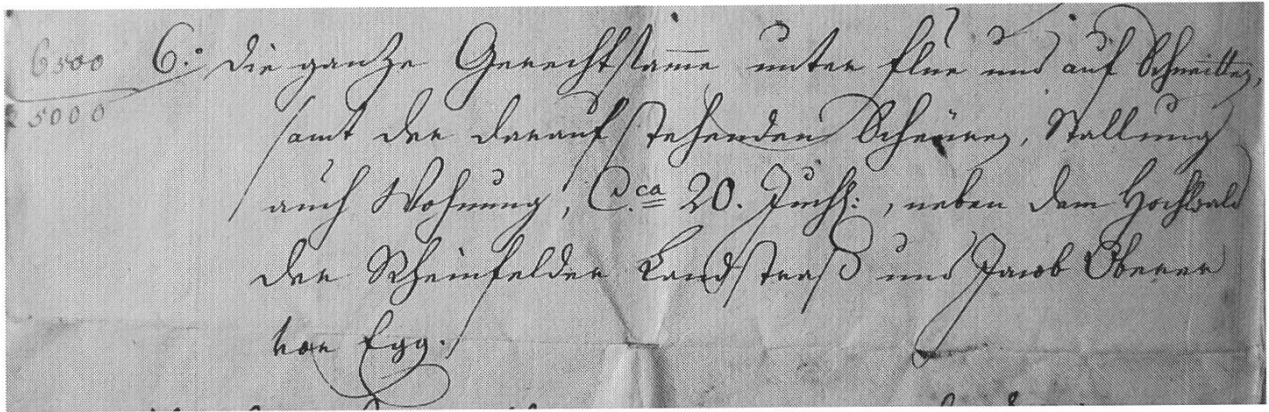 6500 6.° die ganze Gerechtstame unter flue und auf Schneitter,
25000
samt der darauf stehenden Scheüren, Stallung
auch Wohnung, C.ca 20. Juch:, neben dem Hochwald
der Rheinfelder Landstraß und Jacob Oberer
von Egg.